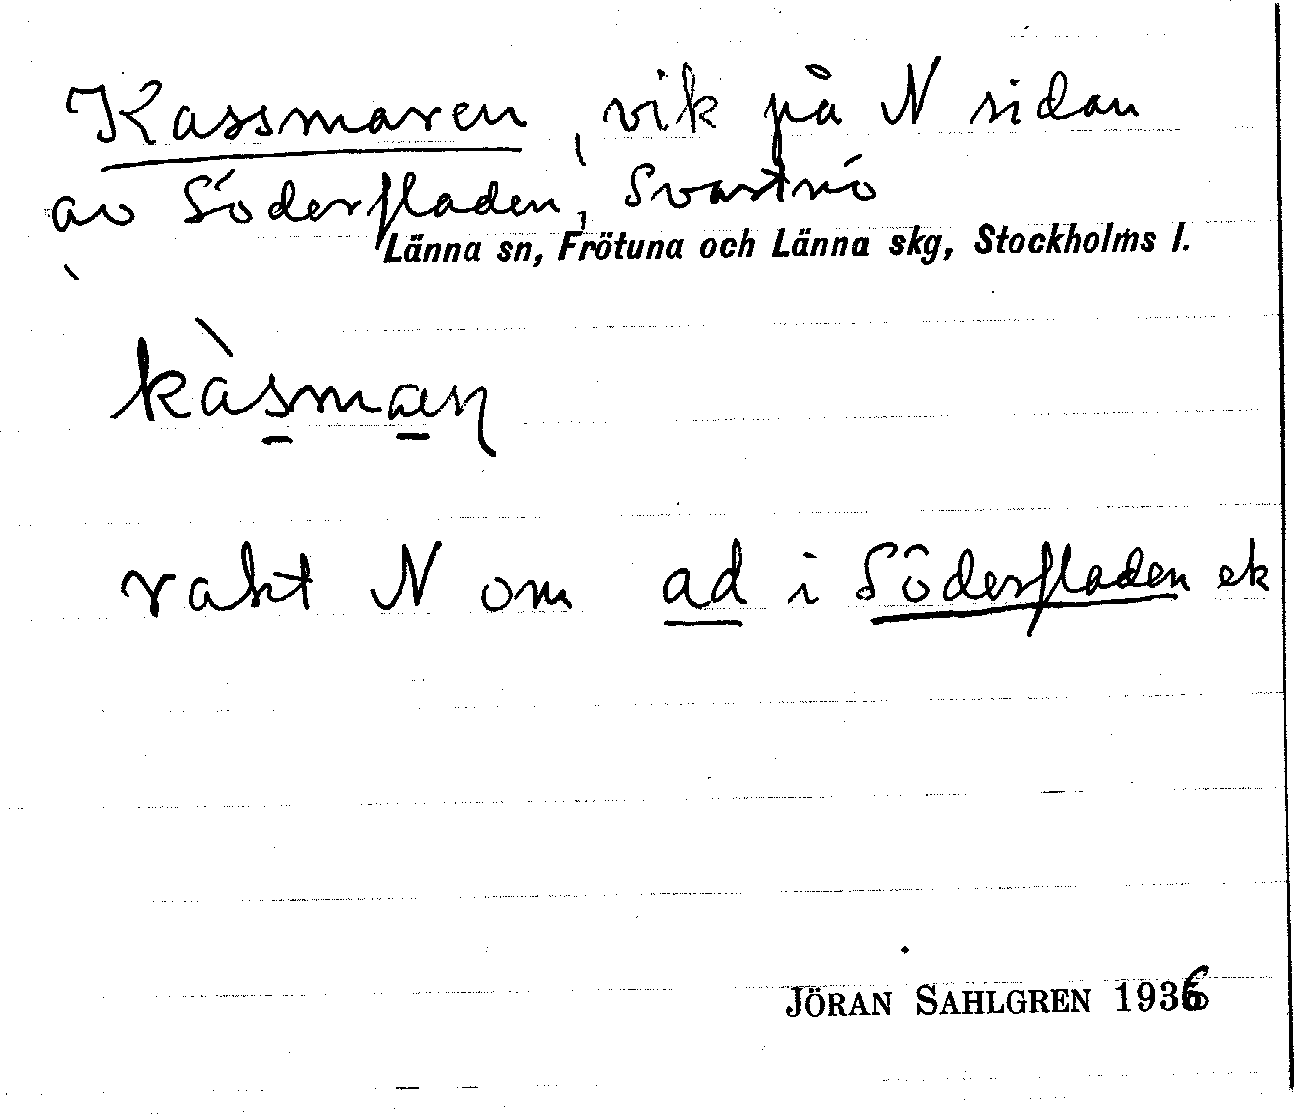 Kassmaren, vik på N sidan
av Söderfladen, Svartnö
Länna sn, Frötuna och Länna skg, Stockholms l.
kàsmaṇ
rakt N om ad i Söderfladen ek
JÖRAN SAHLGREN 1936